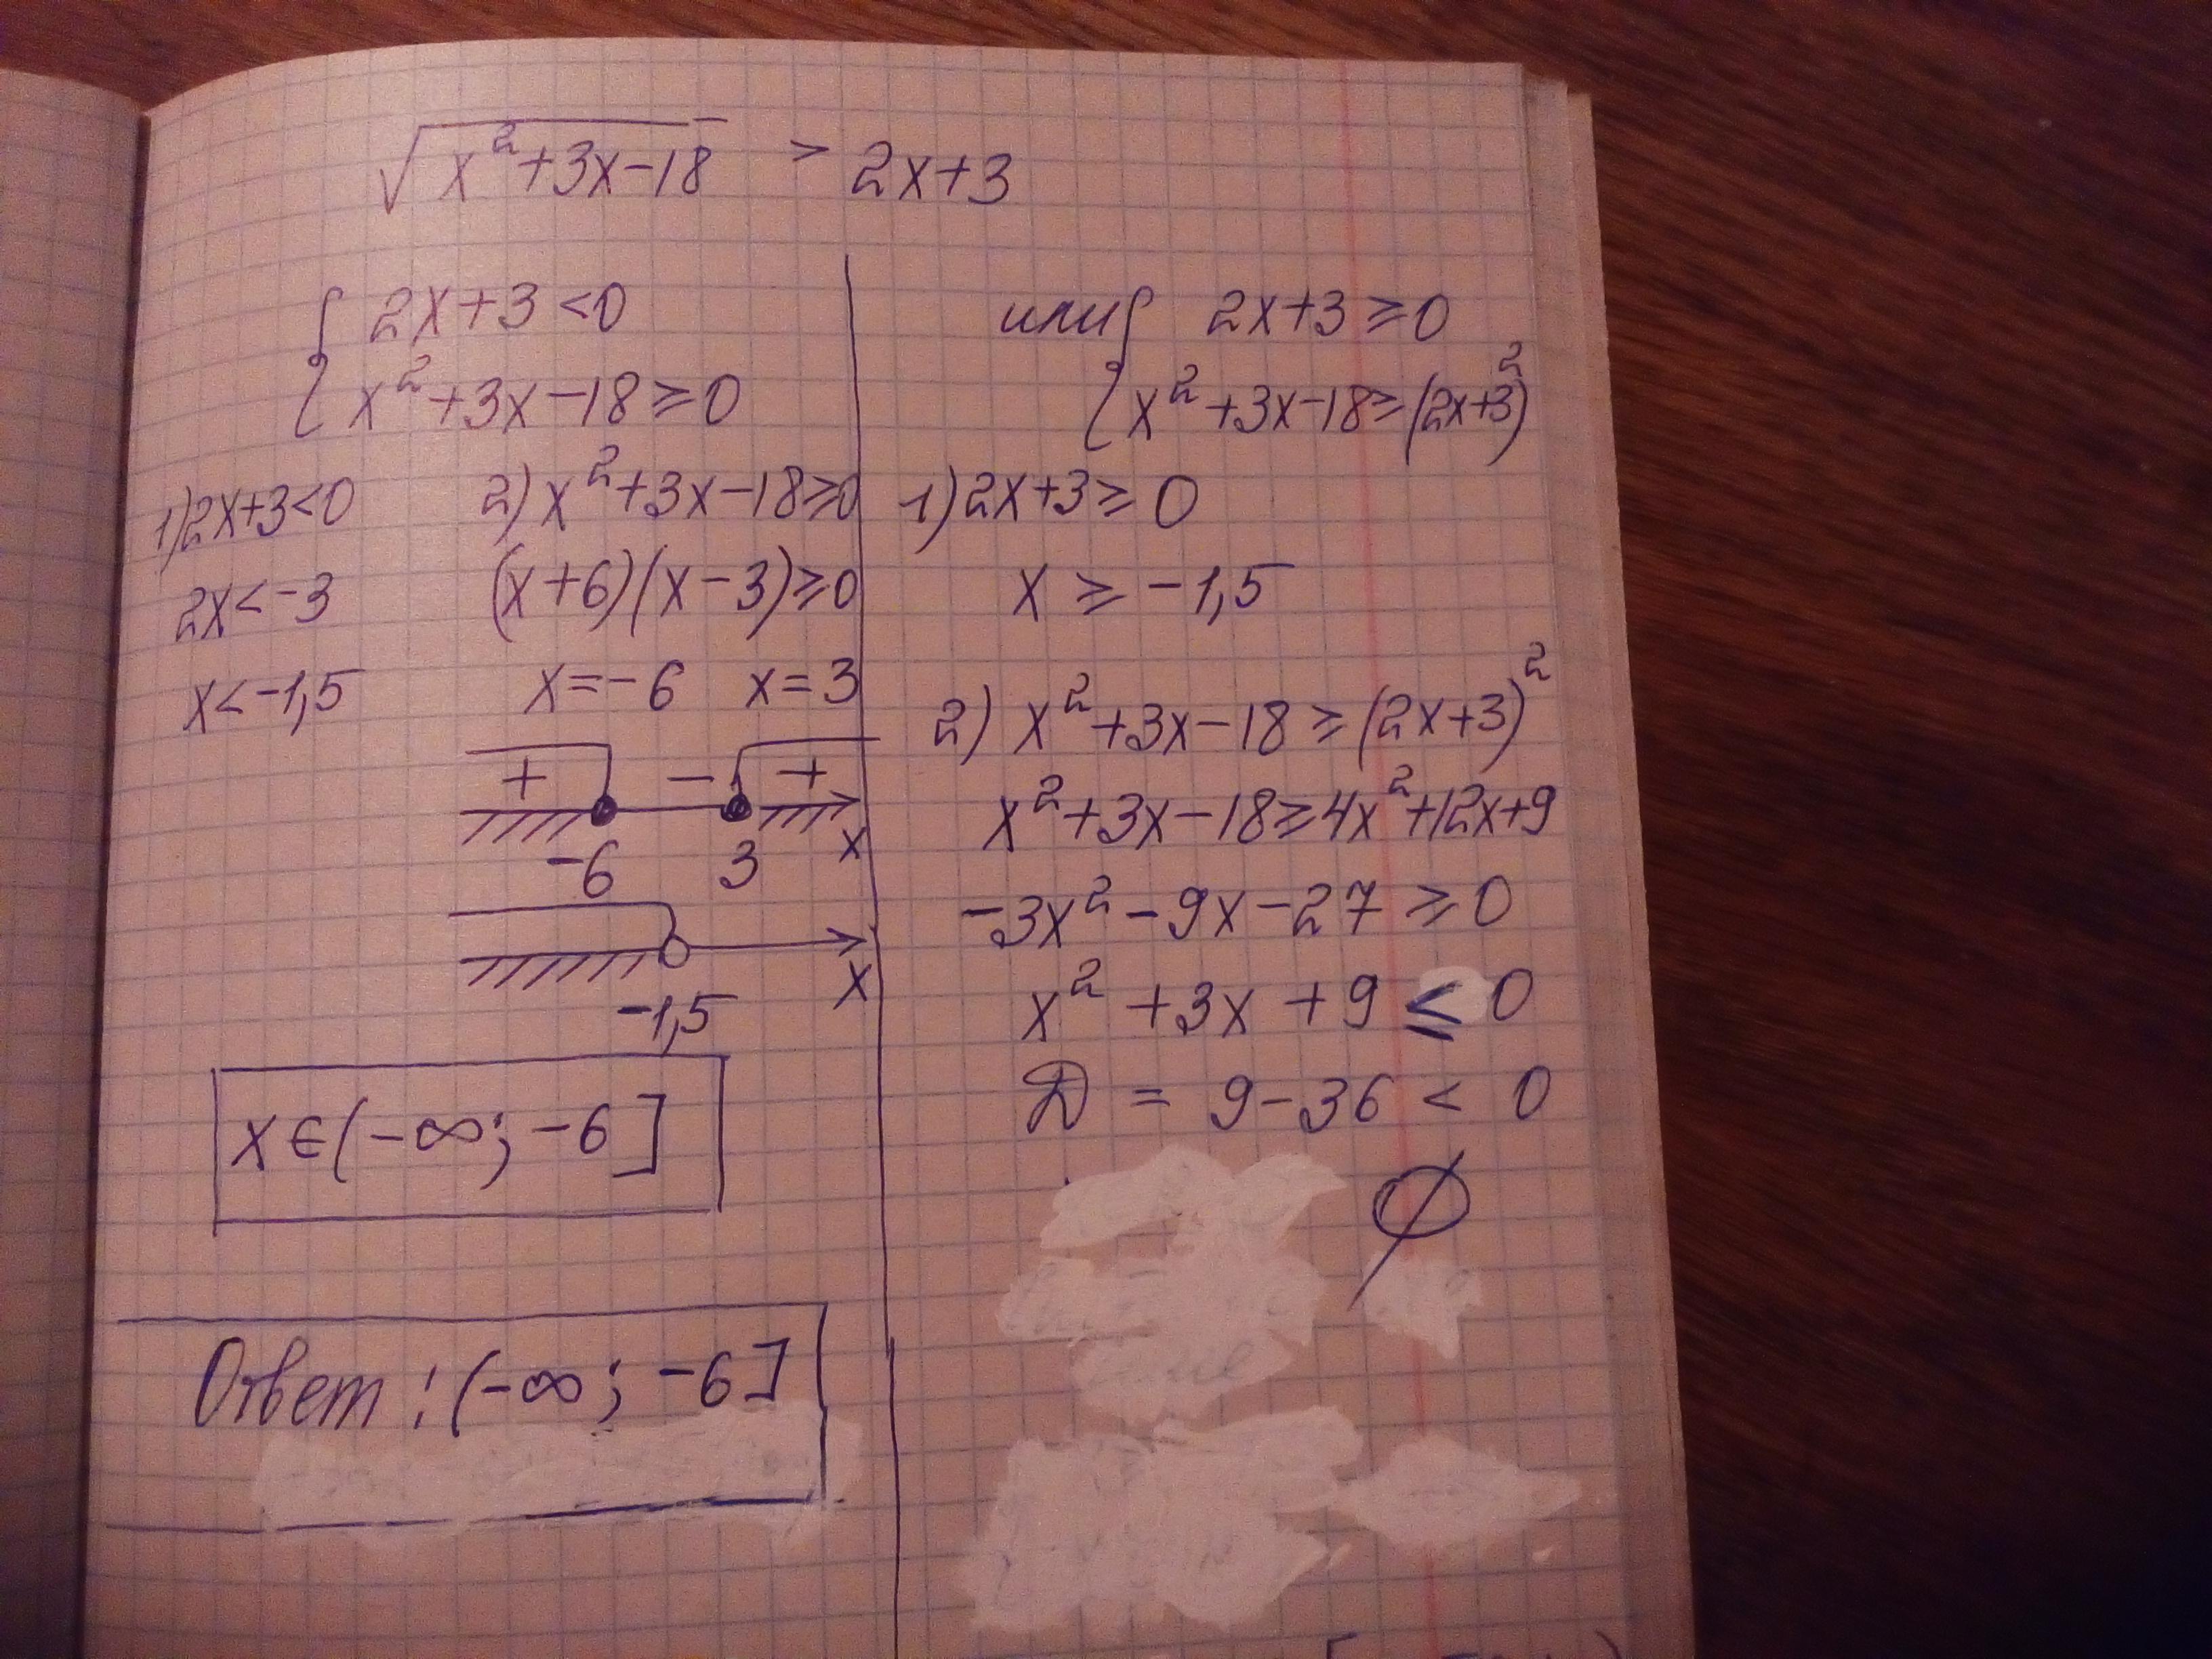 √(x²+3x-18) > 2x+3
{ 2x+3<0
x²+3x-18≥0
1) 2x+3<0
2x<-3
x<-1,5
2) x²+3x-18≥0
(x+6)(x-3)≥0
x=-6 x=3
+ - +
-6 3 x
-1,5 x
x∈(-∞; -6]
Ответ: (-∞; -6]
или { 2x+3≥0
x²+3x-18≥(2x+3)²
1) 2x+3≥0
x≥-1,5
2) x²+3x-18≥(2x+3)²
x²+3x-18≥4x²+12x+9
-3x²-9x-27≥0
x²+3x+9≤0
D=9-36<0
∅